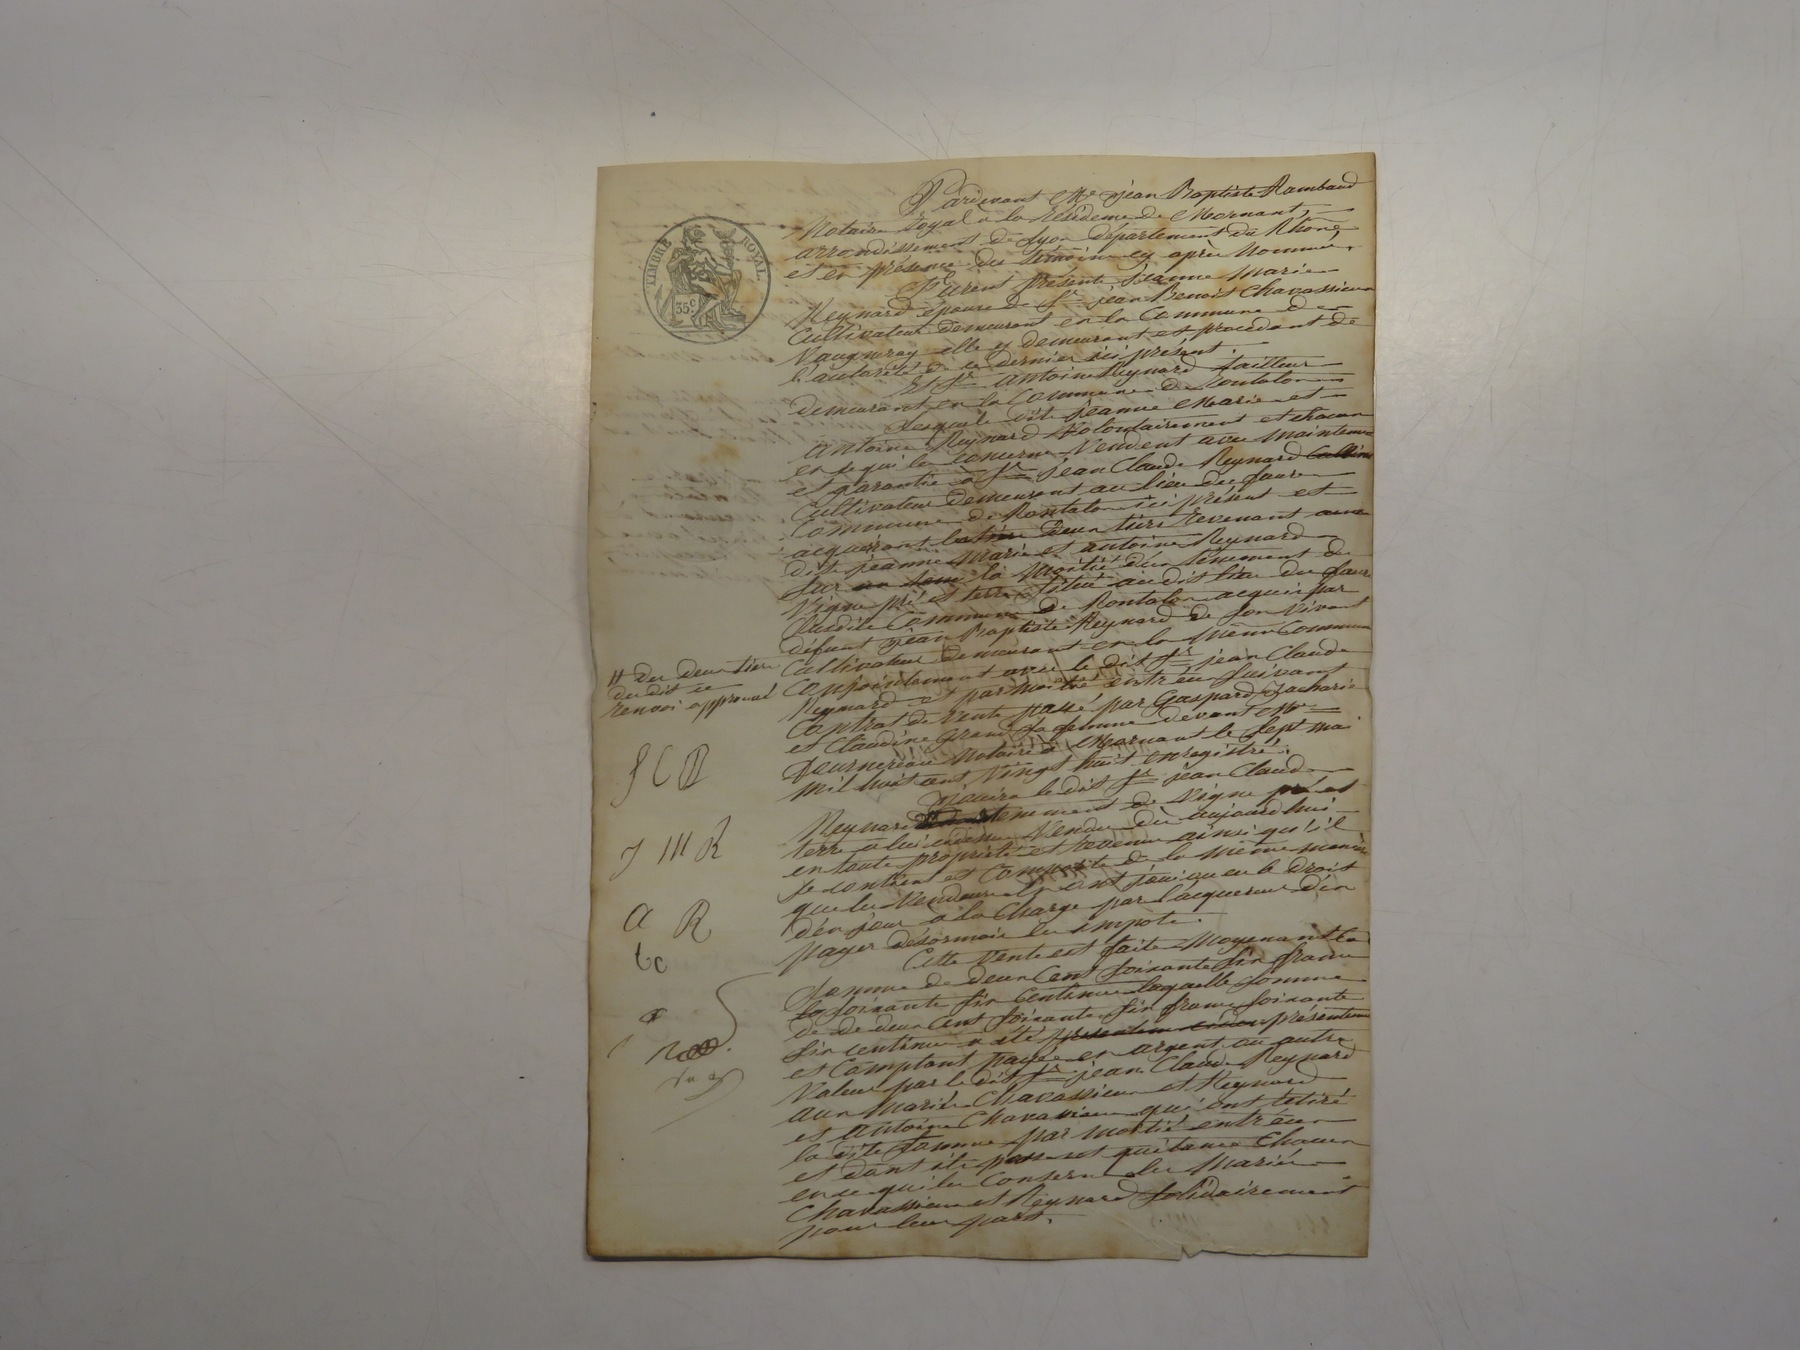 TIMBRE ROYAL
35 c
Pardevant Me jean Baptiste Rambaud
Notaire royal a la résidence de Mornant,
arrondissement de Lyon département du Rhône
et en présence des témoins cy après nommés,
furent présents Jeanne Marie
Reynard épouse de Sr jean Benoit Chavassieux
Cultivateur demeurant en la Commune de
Vaugneray elle y demeurant et procédant de
l'autorité de ce dernier ici présent.
Et Sr antoine Reynard tailleur
demeurant en la Commune de Rontalon
Lesquels dite jeanne Marie et
antoine Reynard Volontairement et chacun
en ce qui le concerne Vendent avec maintenue
et garantie a Sr jean Claude Reynard
Cultivateur demeurant au lieu du faure
Commune de Rontalon ici présent et
acquérant les deux tiers revenant aux
dits jeanne Marie et antoine Reynard
sur la Moitié d'un tènement de
Vigne pré et terre situé au dit lieu du faure
susdite Commune de Rontalon acquis par
défunt jean Baptiste Reynard de son vivant
Cultivateur demeurant en la même Commune
Conjointement avec le dit Sr jean Claude
Reynard et par moitié entr'eux suivant
Contrat de vente passé par Gaspard Zacharie
et Claudine Grand sa femme devant Me
notaire a Mornant le sept mai
mil huit cent vingt huit enregistré.
jouira le dit Sr jean Claude
Reynard tenement de Vigne pré et
terre a lui cidessus Vendu dès aujourd'hui
en toute propriété et revenu ainsi qu'il
se contient et Comporte de la même manière
que les Vendeurs en ont joui ou eu le droit
d'en jouir a la Charge par l'acquéreur d'en
payer désormais les impots.
Cette Vente est faite Moyenant la
somme de deux Cent soixante six francs
soixante six Centimes laquelle somme
de deux Cent soixante six francs soixante
six centimes a été présentement
et Comptant payée en argent ou autre
Valeur par le dit Sr jean Claude Reynard
aux mariés Chavassieux et Reynard
et antoine Chavassieux qui ont retiré
la dite somme par moitié entr'eux
et dont ils passent quittance Chacun
en ce qui les Concerne les Mariés
Chavassieux et Reynard solidairement
pour leur part.
# des deux tiers
du dit
renvoi approuvé
J C R
J M R
A R